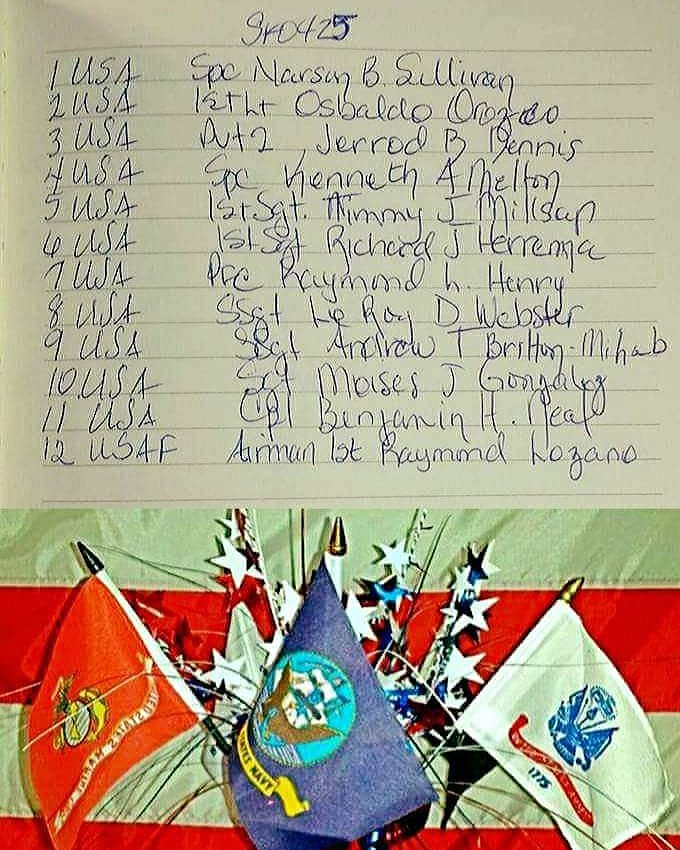 1 USA Spc Narson B. Sullivan
2 USA 1st Lt Osbaldo Orozco
3 USA Pvt2 Jerrod B Dennis
4 USA Spc Kenneth A Melton
5 USA 1st Sgt. Timmy J Millsap
6 USA 1st Sgt Richard J Herrema
7 USA Pfc Raymond L. Henry
8 USA SSgt Le Roy D Webster
9 USA SSgt Andrew T Britton-Mihalo
10 USA Sgt Moises J Gonzalez
11 USA Cpl Benjamin H. Neal
12 USAF Airman 1st Raymond Lozano
UNITED STATES MARINE CORPS
UNITED STATES NAVY
1775